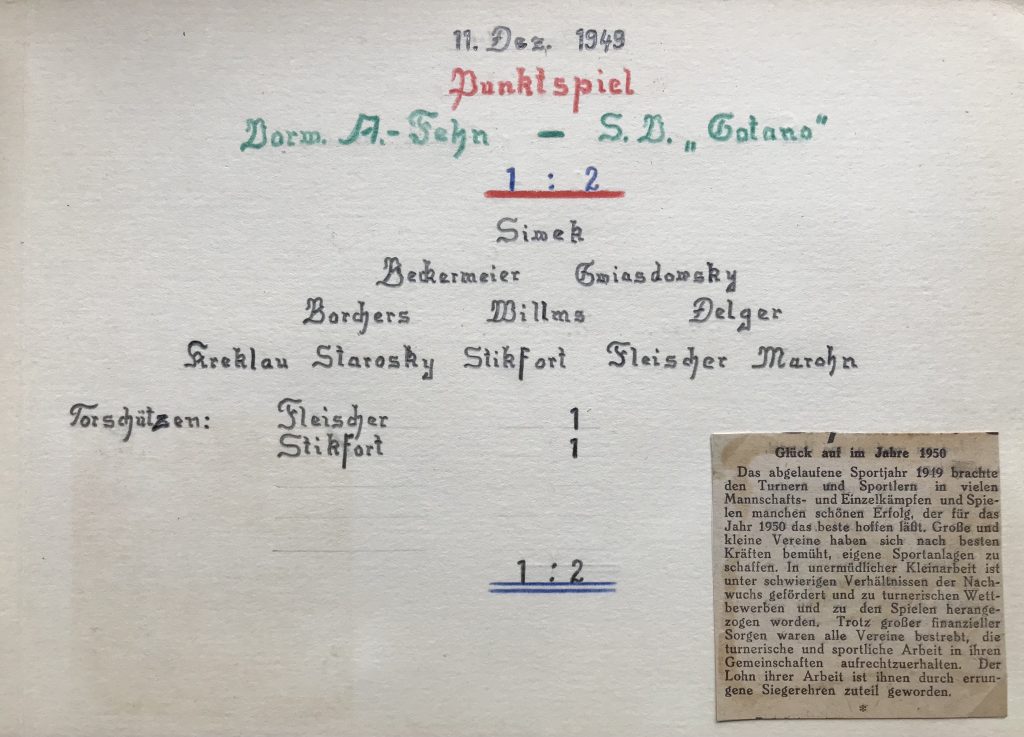 11. Dez. 1949
Punktspiel
Vorw. A.-Fehn – S. V. „Gotano“
1 : 2
Simek
Beckermeier Gwiasdowsky
Borchers Willms Delger
Kreklau Starosky Stikfort Fleischer Marohn
Torschützen: Fleischer 1
Stikfort 1
1 : 2
Glück auf im Jahre 1950
Das abgelaufene Sportjahr 1949 brachte
den Turnern und Sportlern in vielen
Mannschafts- und Einzelkämpfen und Spie-
len manchen schönen Erfolg, der für das
Jahr 1950 das beste hoffen läßt. Große und
kleine Vereine haben sich nach besten
Kräften bemüht, eigene Sportanlagen zu
schaffen. In unermüdlicher Kleinarbeit ist
unter schwierigen Verhältnissen der Nach-
wuchs gefördert und zu turnerischen Wett-
bewerben und zu den Spielen herange-
zogen worden. Trotz großer finanzieller
Sorgen waren alle Vereine bestrebt, die
turnerische und sportliche Arbeit in ihren
Gemeinschaften aufrechtzuerhalten. Der
Lohn ihrer Arbeit ist ihnen durch errun-
gene Siegerehren zuteil geworden.
*